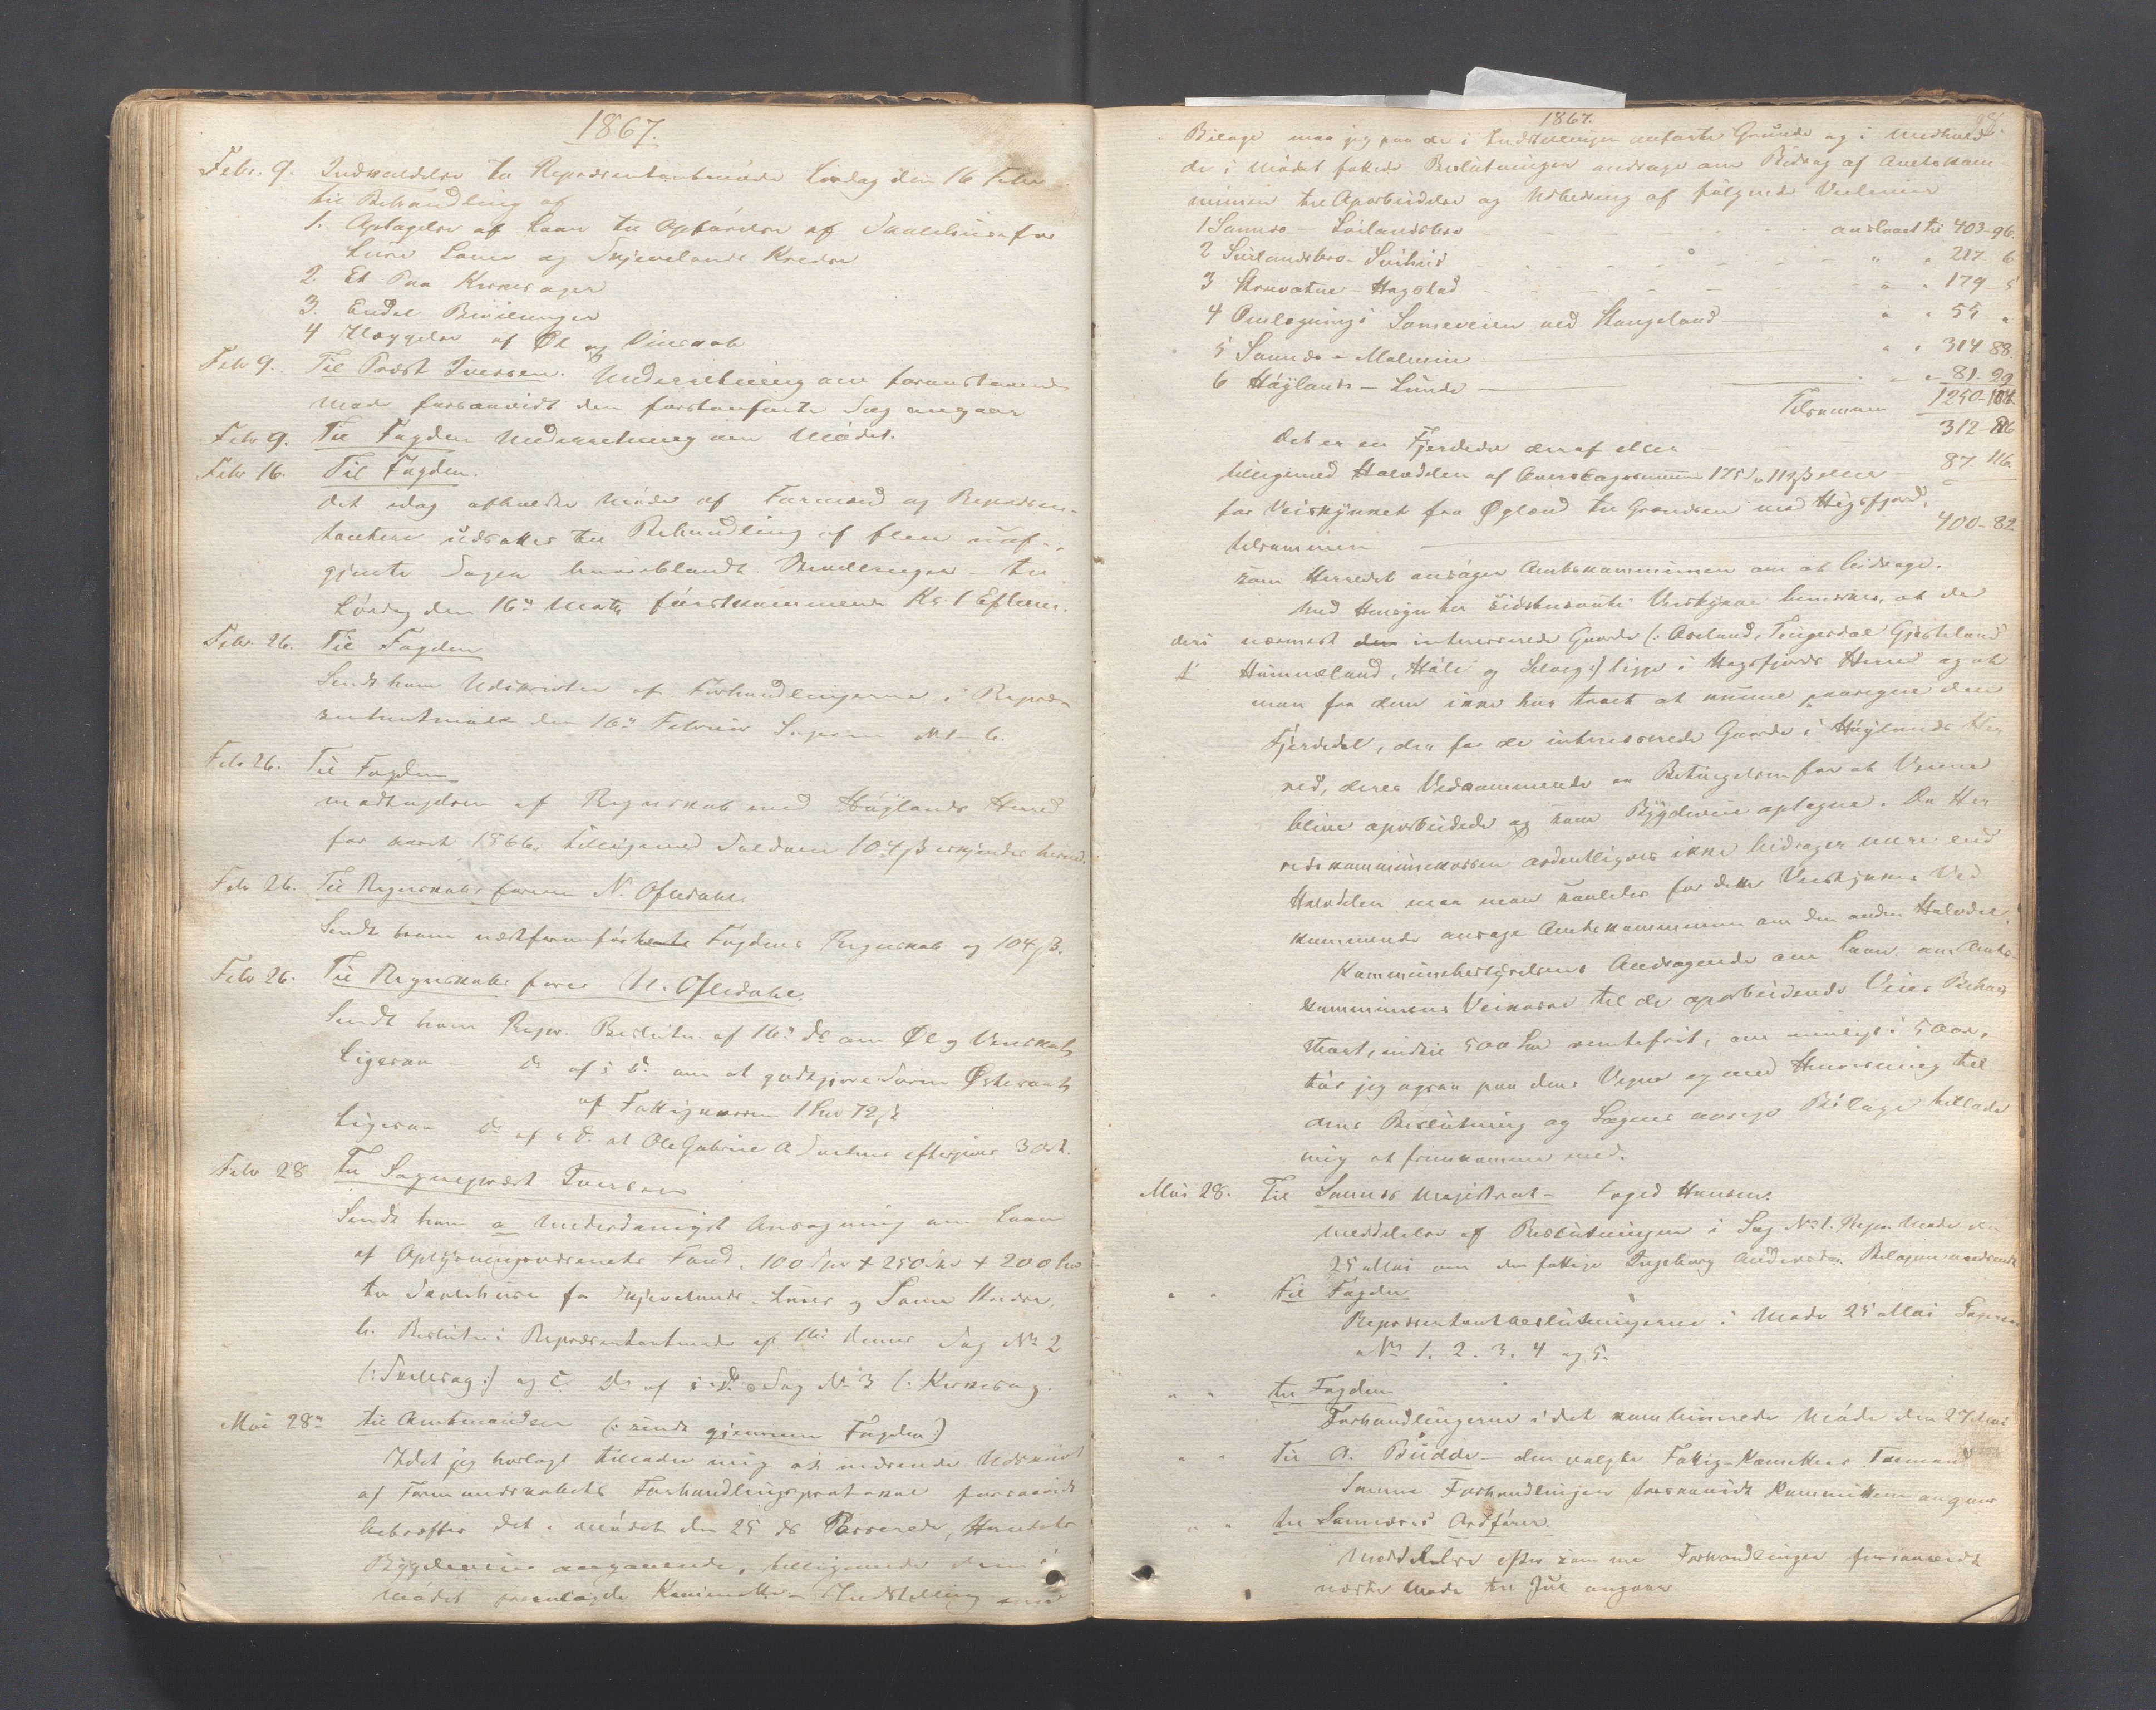 1867.
Febr. 9. Indkaldelse til Repræsentantmøde Lørdag den 16 Febr
til Behandling af
1. Optagelse af Laan til Opførelse af Skolehuse for
Lura Soma og Skjevelands Kredse
2 Et Par Kirkesager
3. Endel Bevilninger
4 Ilæggelse af Øl og Vinskat
Febr 9. Til Præst Iversen. Underretning om foranstaaende
Møde forsaavidt den førstanførte Sag angaar
Febr 9. Til Fogden Underretning om Mødet.
Febr 16. Til Fogden.
Det idag afholdte Møde af Formænd og Repræsen-
tanterne udsattes til Behandling af flere uaf-
gjorte Sager hvoriblandt Bevillinger - til
Lørdag den 16de Marts førstkommende Kl 1 Efterm.
Febr. 26. Til Fogden
Sendt ham Udskrifter af Forhandlingerne i Repræ-
sentantmøde den 16de Februar Sagerne No 1-6.
Febr 26. Til Fogden
Modtagelsen af Regnskab med Høylands Herred
for Aaret 1866 tilligemed Saldoen 104 ß erkjendes herved.
Febr 26. Til Regnskabsføreren N. Oftedahl.
Sendt ham næstforanførte Fogdens Regnskab og 104 ß.
Febr 26. Til Regnskabsfører N. Oftedahl.
Sendt ham Repr. Beslutn. af 16de ds om Øl og Vinskat
Ligesaa Do af s D. om at godtgjøre Søren Østeraat
af Fattigkassen 1 Spd 72 ß
Ligesaa Do af s D. at Ole Gabriel A eftergives 3 Ort.
Febr 28 Til Sognepræst Iversen
Sendt ham a Underdanigst Ansøgning om Laan
af Oplysningsvæsenets Fond. 100 Spd + 250 Spd + 200 Spd
til Skolehuse for Skjevelands - Luras og Soma Kredse,
b. Beslutn i Repræsentantmøde af 16de dennes Sag No 2
(: Skolesag :) og c Do af s D. Sag No 3 (: Kirkesag.
Mai 28de til Amtmanden (: sendt gjennem Fogden :)
Idet jeg herlagt tillader mig at indsende Udskrift
af Formandskabets Forhandlingsprotokol forsaavidt
betræffer det i Mødet den 25 ds Passerede, Herredets
Bygdeveie angaaende, tilligemed den i
Mødet fremlagte Komitee - Indstilling med
1867.
Bilage maa jeg paa de i Indstillingen anførte Grunde og i Medhold
de i Mødet fattede Beslutninger andrage om Bidrag af Amtskom-
munen til Oparbeidelse og Udbedring af følgende Veilinier
1 Sannes - Soilandsbro - - - anslaaet til 403-96.
2 Soilandsbro - Svihus - - - " " 217 6
3 Skarvatne - Hogstad - - - " " 179-5
4 Omlægning i Someveien ved Stangeland " " 55 "
5 Sannes - Malmin " " 314 88.
6 Høylands - Lunde " " 81-29
Tilsammen 1250-104
Det er en Fjerdedel deraf eller 312-86
tilligemed Halvdelen af Overslagssummen 175 Spd 112 ß eller 87 116.
for Veistykket fra Øgland til Grændsen mod Høgsfjord,
tilsammen 400-82
som Herredet ansøger Amtskommunen om at bidrage.
Med Hensyn til sidstnævnte Veistykke bemærkes, at de
deri nærmest den interesserede Gaarde (: Aseland, Tengesdal Gjesteland
Hommeland, Hole og Selvig :) ligge i Høgsfjords Herred og at
man fra dem ikke har troet at kunne paaregne den
Fjerdedel, der for de interesserede Gaarde i Høylands Her
red, deres Vedkommende er Betingelsen for at Veiene
blive oparbeidede og som Bygdeveie optagne. Da Her
redskommunekassen ordentligvis ikke bidrager mere end
Halvdelen maa man saaledes for dette Veistykkes Ved
kommende ansøge Amtskommunen om den anden Halvdel.
Kommunebestyrelsens Andragende om Laan af Amts-
kommunens Veikasse til de oparbeidende Veies Bekost
, indtil 500 Spd rentefrit, om muligt i 5 Aar,
tør jeg ogsaa paa dens Vegne og med Henvisning til
dens Beslutning og Sagens øvrige Bilage tillade
mig at fremkomme med.
Mai 28. Til Sannes Magistrat - Foged Hansen.
Meddelelse af Beslutningen i Sag No 1. Repr. Møde den
25 Mai om den fattige Ingeborg Andersdtr. Bilagene medsendt
" " Til Fogden
Repræsentantbeslutningerne i Møde 25 Mai Sagerne
No 1. 2. 3. 4 og 5.
" " til Fogden
Forhandlingerne i det kombinerede Møde den 27 Mai
" " Til A. Budde - den valgte Fattig-Komittees Formand
Samme Forhandlinger forsaavidt Kommitteen angaar
" " til Sannes's Ordfører.
Meddelelse efter samme Forhandlinger forsaavidt
næste Møde til Jul angaar